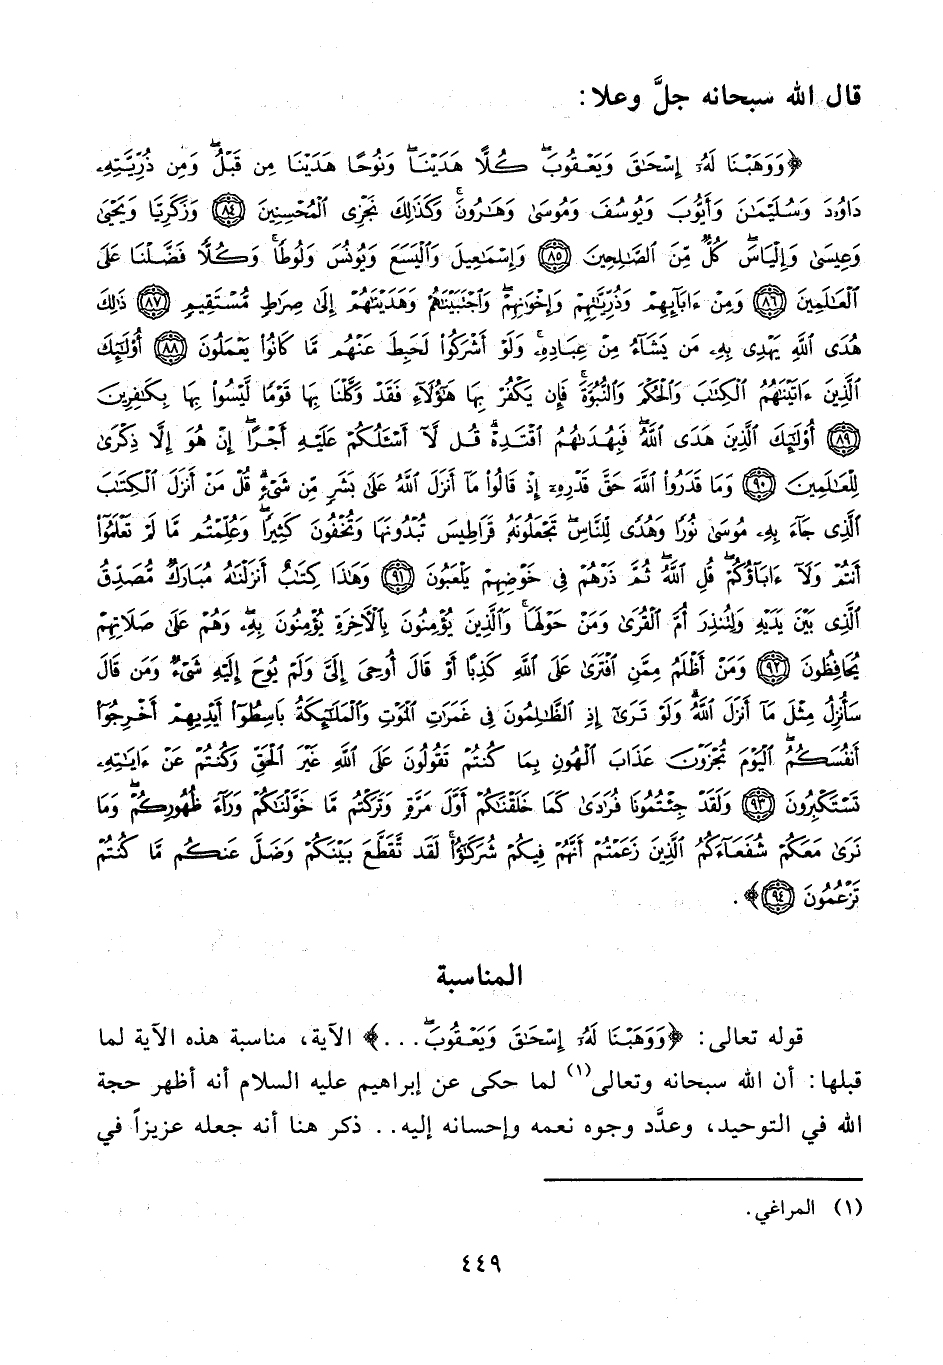 قال الله سبحانه جلَّ وعلا:
﴿وَوَهَبْنَا لَهُۥٓ إِسْحَٰقَ وَيَعْقُوبَ ۚ كُلًّا هَدَيْنَا ۚ وَنُوحًا هَدَيْنَا مِن قَبْلُ ۖ وَمِن ذُرِّيَّتِهِۦ
دَاوُۥدَ وَسُلَيْمَٰنَ وَأَيُّوبَ وَيُوسُفَ وَمُوسَىٰ وَهَٰرُونَ ۚ وَكَذَٰلِكَ نَجْزِى الْمُحْسِنِينَ ﴿٨٤﴾ وَزَكَرِيَّا وَيَحْيَىٰ
وَعِيسَىٰ وَإِلْيَاسَ ۖ كُلٌّ مِّنَ الصَّٰلِحِينَ ﴿٨٥﴾ وَإِسْمَٰعِيلَ وَالْيَسَعَ وَيُونُسَ وَلُوطًا ۚ وَكُلًّا فَضَّلْنَا عَلَى
الْعَٰلَمِينَ ﴿٨٦﴾ وَمِنْ ءَابَآئِهِمْ وَذُرِّيَّٰتِهِمْ وَإِخْوَٰنِهِمْ ۖ وَاجْتَبَيْنَٰهُمْ وَهَدَيْنَٰهُمْ إِلَىٰ صِرَٰطٍ مُّسْتَقِيمٍ ﴿٨٧﴾ ذَٰلِكَ
هُدَى اللَّهِ يَهْدِى بِهِۦ مَن يَشَآءُ مِنْ عِبَادِهِۦ ۚ وَلَوْ أَشْرَكُوا۟ لَحَبِطَ عَنْهُم مَّا كَانُوا۟ يَعْمَلُونَ ﴿٨٨﴾ أُو۟لَٰٓئِكَ
الَّذِينَ ءَاتَيْنَٰهُمُ الْكِتَٰبَ وَالْحُكْمَ وَالنُّبُوَّةَ ۚ فَإِن يَكْفُرْ بِهَا هَٰٓؤُلَآءِ فَقَدْ وَكَّلْنَا بِهَا قَوْمًا لَّيْسُوا۟ بِهَا بِكَٰفِرِينَ
﴿٨٩﴾ أُو۟لَٰٓئِكَ الَّذِينَ هَدَى اللَّهُ ۖ فَبِهُدَىٰهُمُ اقْتَدِهْ ۗ قُل لَّآ أَسْـَٔلُكُمْ عَلَيْهِ أَجْرًا ۖ إِنْ هُوَ إِلَّا ذِكْرَىٰ
لِلْعَٰلَمِينَ ﴿٩٠﴾ وَمَا قَدَرُوا۟ اللَّهَ حَقَّ قَدْرِهِۦٓ إِذْ قَالُوا۟ مَآ أَنزَلَ اللَّهُ عَلَىٰ بَشَرٍ مِّن شَىْءٍ ۗ قُلْ مَنْ أَنزَلَ الْكِتَٰبَ
الَّذِى جَآءَ بِهِۦ مُوسَىٰ نُورًا وَهُدًى لِّلنَّاسِ ۖ تَجْعَلُونَهُۥ قَرَاطِيسَ تُبْدُونَهَا وَتُخْفُونَ كَثِيرًا ۖ وَعُلِّمْتُم مَّا لَمْ تَعْلَمُوٓا۟
أَنتُمْ وَلَآ ءَابَآؤُكُمْ ۖ قُلِ اللَّهُ ۖ ثُمَّ ذَرْهُمْ فِى خَوْضِهِمْ يَلْعَبُونَ ﴿٩١﴾ وَهَٰذَا كِتَٰبٌ أَنزَلْنَٰهُ مُبَارَكٌ مُّصَدِّقُ
الَّذِى بَيْنَ يَدَيْهِ وَلِتُنذِرَ أُمَّ الْقُرَىٰ وَمَنْ حَوْلَهَا ۚ وَالَّذِينَ يُؤْمِنُونَ بِالْءَاخِرَةِ يُؤْمِنُونَ بِهِۦ ۖ وَهُمْ عَلَىٰ صَلَاتِهِمْ
يُحَافِظُونَ ﴿٩٢﴾ وَمَنْ أَظْلَمُ مِمَّنِ افْتَرَىٰ عَلَى اللَّهِ كَذِبًا أَوْ قَالَ أُوحِىَ إِلَىَّ وَلَمْ يُوحَ إِلَيْهِ شَىْءٌ وَمَن قَالَ
سَأُنزِلُ مِثْلَ مَآ أَنزَلَ اللَّهُ ۗ وَلَوْ تَرَىٰٓ إِذِ الظَّٰلِمُونَ فِى غَمَرَٰتِ الْمَوْتِ وَالْمَلَٰٓئِكَةُ بَاسِطُوٓا۟ أَيْدِيهِمْ أَخْرِجُوٓا۟
أَنفُسَكُمُ ۖ الْيَوْمَ تُجْزَوْنَ عَذَابَ الْهُونِ بِمَا كُنتُمْ تَقُولُونَ عَلَى اللَّهِ غَيْرَ الْحَقِّ وَكُنتُمْ عَنْ ءَايَٰتِهِۦ
تَسْتَكْبِرُونَ ﴿٩٣﴾ وَلَقَدْ جِئْتُمُونَا فُرَٰدَىٰ كَمَا خَلَقْنَٰكُمْ أَوَّلَ مَرَّةٍ وَتَرَكْتُم مَّا خَوَّلْنَٰكُمْ وَرَآءَ ظُهُورِكُمْ ۖ وَمَا
نَرَىٰ مَعَكُمْ شُفَعَآءَكُمُ الَّذِينَ زَعَمْتُمْ أَنَّهُمْ فِيكُمْ شُرَكَٰٓؤُا۟ ۚ لَقَد تَّقَطَّعَ بَيْنَكُمْ وَضَلَّ عَنكُم مَّا كُنتُمْ
تَزْعُمُونَ ﴿٩٤﴾﴾.
المناسبة
قوله تعالى: ﴿وَوَهَبْنَا لَهُۥٓ إِسْحَٰقَ وَيَعْقُوبَ ۚ ...﴾ الآية، مناسبة هذه الآية لما
قبلها: أن الله سبحانه وتعالى(١) لما حكى عن إبراهيم عليه السلام أنه أظهر حجة
الله في التوحيد، وعدَّد وجوه نعمه وإحسانه إليه.. ذكر هنا أنه جعله عزيزاً في
(١) المراغي.
٤٤٩